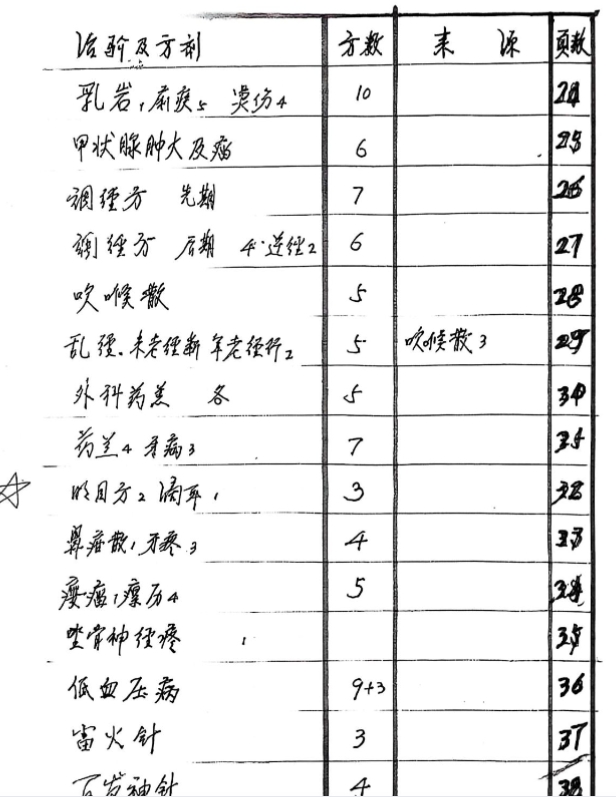 治验及方剂 方数 来源 页数
乳岩1 痄疾5 烫伤4 10
甲状腺肿大及瘤 6 25
调经方 先期 7 26
调经方 后期 4 逆经2 6 27
吹喉散 5 28
乱经.未老经断 年老经行2 5 吹喉散3 29
外科药 各 5 30
药 4 牙病3 7
明目方2 滴耳1 3 32
鼻 散1 牙疼3 4 33
瘿瘤1 瘰历4 5 34
坐骨神经疼 1 35
低血压病 9+3 36
雷火针 3 37
百发神针 4 38